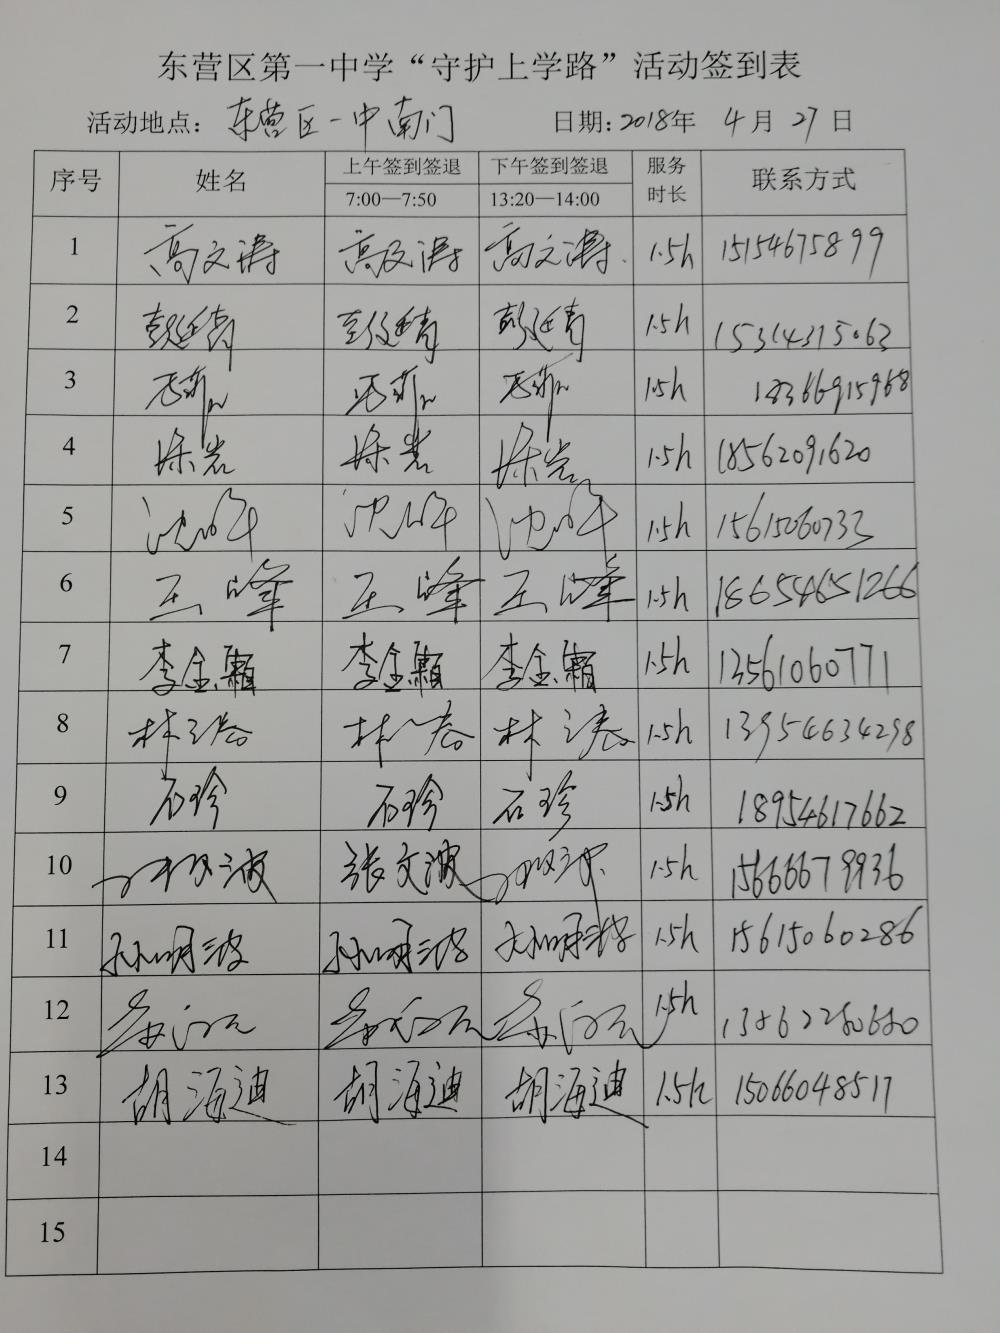 东营区第一中学“守护上学路”活动签到表
活动地点：东营区一中南门 日期：2018年 4月 27日
序号 姓名 上午签到签退 7:00—7:50 下午签到签退 13:20—14:00 服务时长 联系方式
1 高文涛 高文涛 高文涛 1.5h 15154675899
2 彭延青 彭延青 彭延青 1.5h 15314315063
3 1.5h 18366915968
4 徐岩 徐岩 徐岩 1.5h 18562091620
5 沈峰 沈峰 沈峰 1.5h 15615060733
6 王峰 王峰 王峰 1.5h 18654651266
7 李金颖 李金颖 李金颖 1.5h 13561060771
8 林 林 林 1.5h 13954634298
9 石珍 石珍 石珍 1.5h 18954617662
10 张文波 张文波 张文波 1.5h 15666679936
11 孙明波 孙明波 孙明波 1.5h 15615060286
12 1.5h
13 胡海迪 胡海迪 胡海迪 1.5h 15066048517
14
15